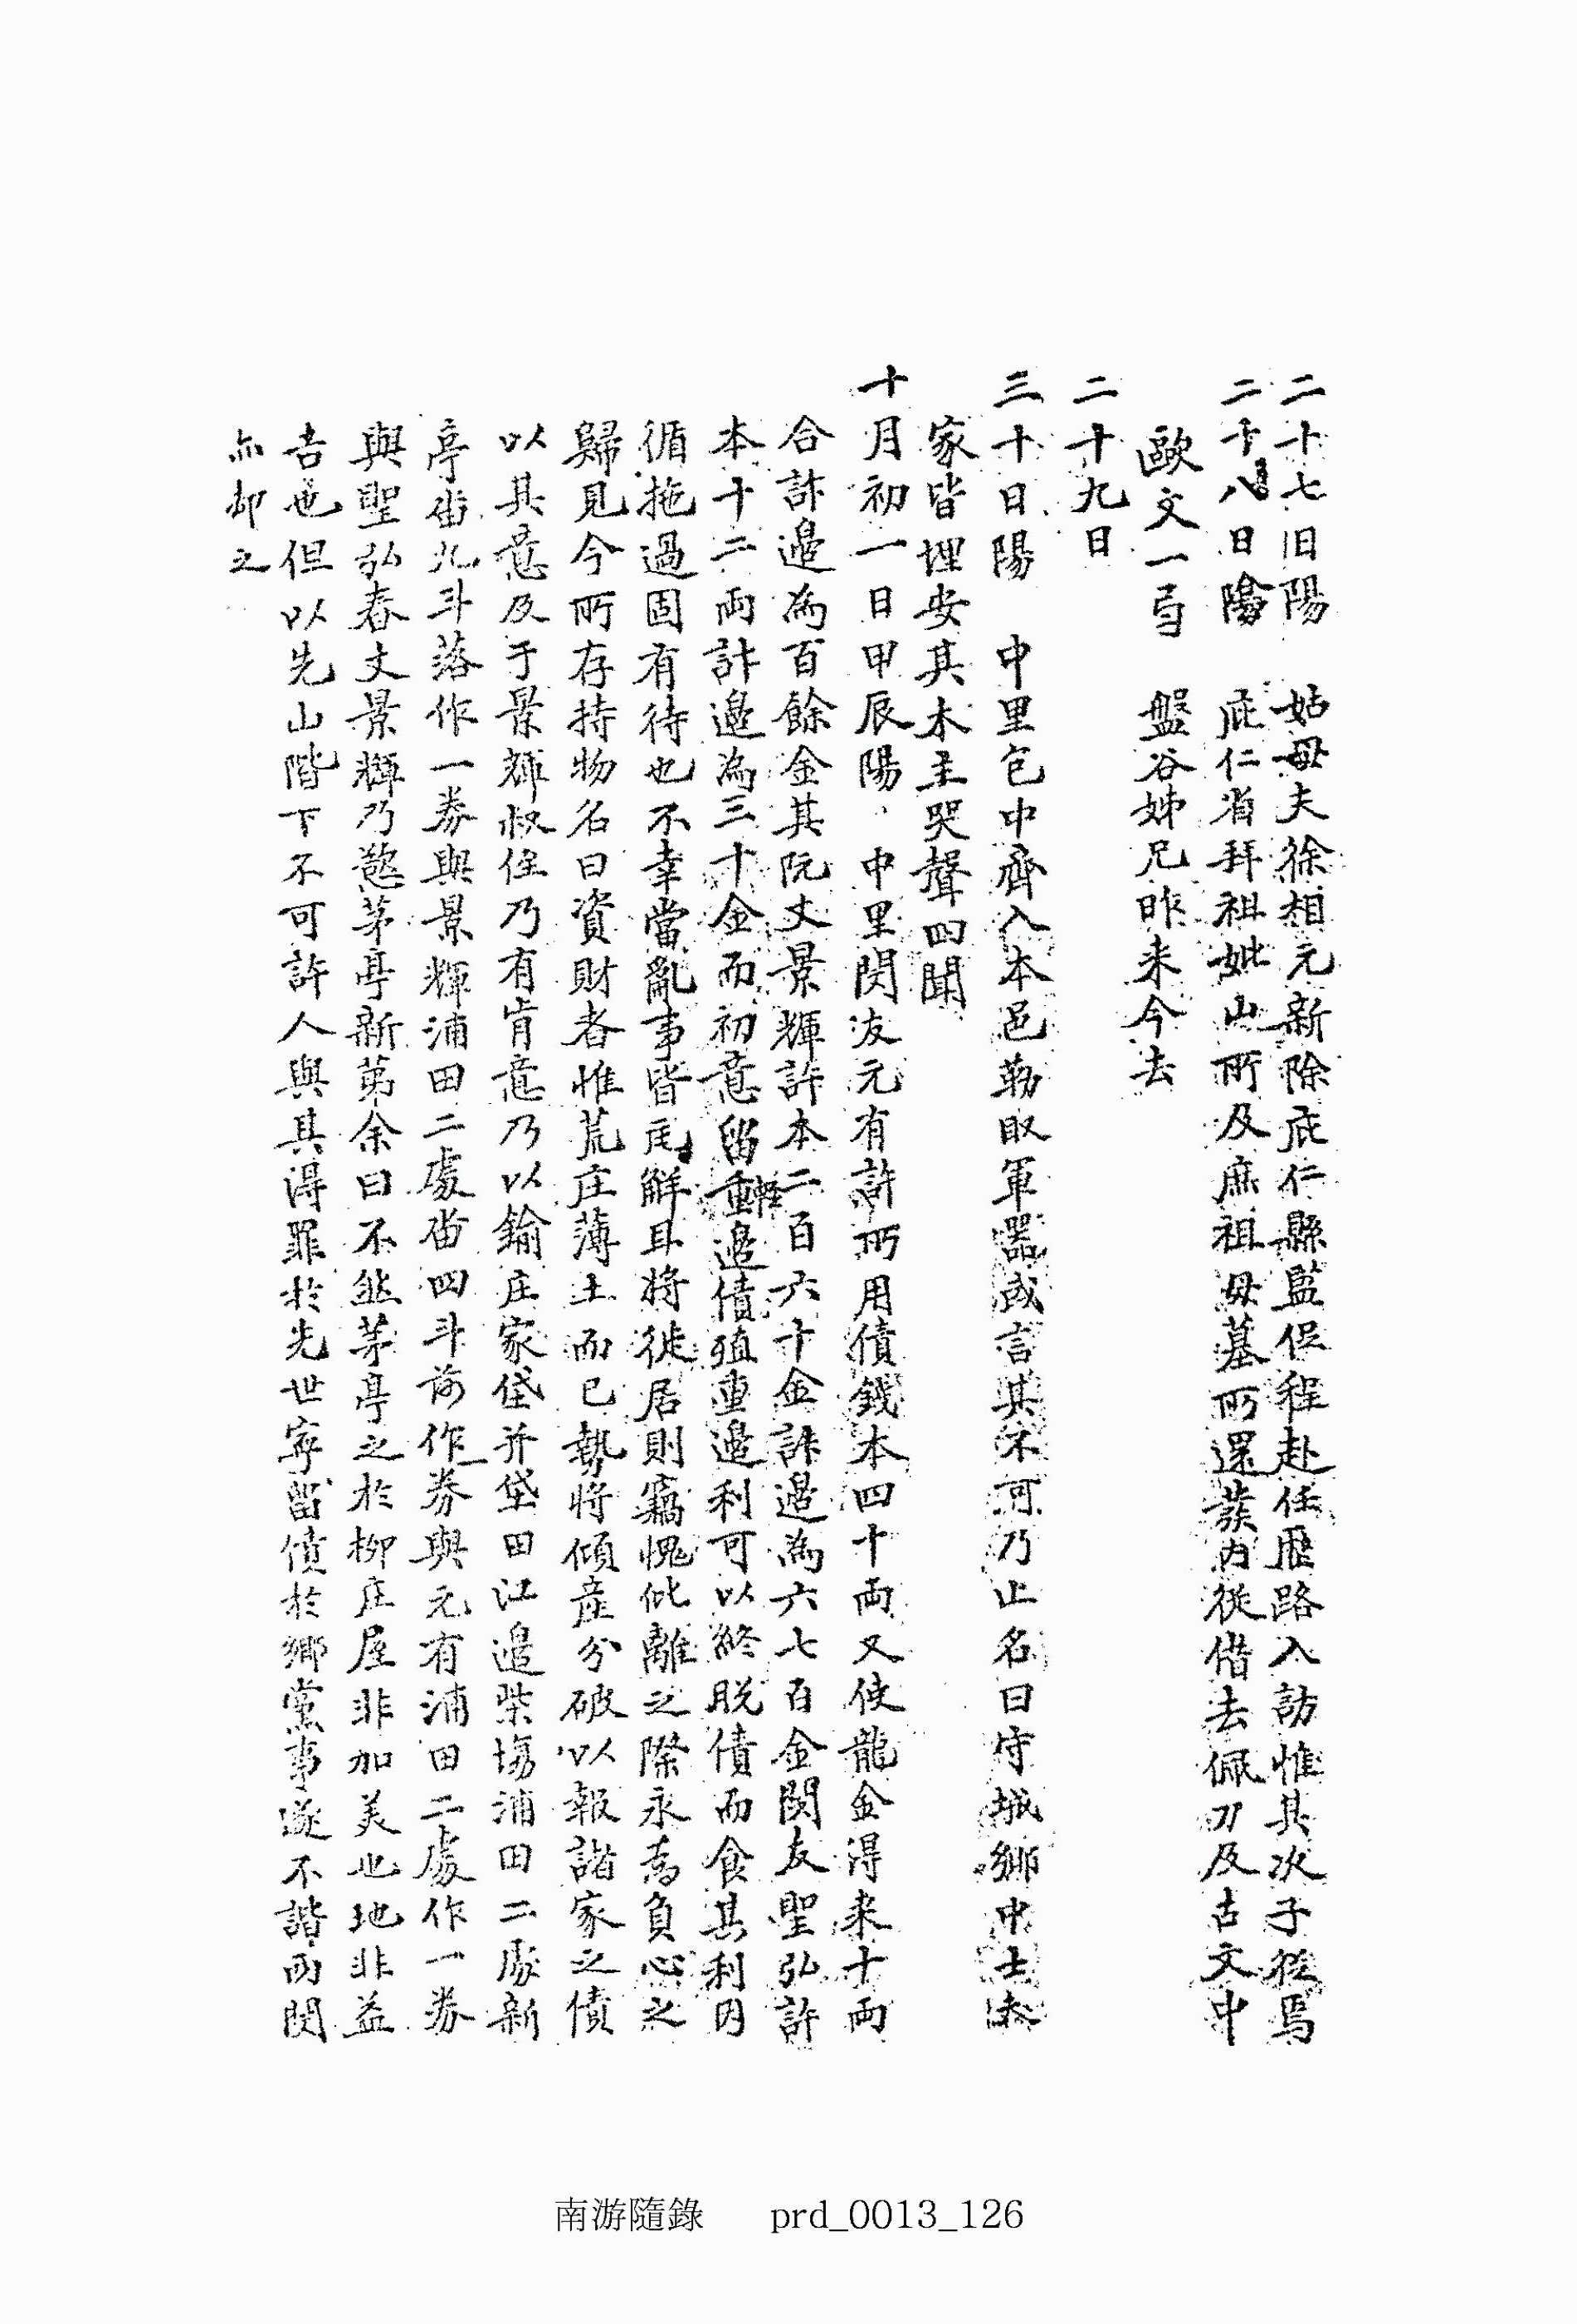 二十七日陽　姑母夫徐相元新除庇仁縣監促程赴任歷路入訪惟其次子從焉
二十八日陽　庇仁省拜祖妣山所及庶祖母墓所還葬內從借去佩刀及古文中
歐文一弓　盤谷姊兄昨来今去
二十九日
三十日陽　中里包中齊入本邑勒取軍器或言其不可乃止名曰守城鄉中士夫
家皆埋安其木主哭聲四聞
十月初一日甲辰陽　中里閔友元有許所用債錢本四十兩又使龍金得来十兩
合計邊為百餘金其阮丈景輝許本二百六十金計邊為六七百金閔友聖弘許
本十二兩計邊為三十金而初意留輕重邊債殖重邊利可以終脫債而食其利因
循拖過固有待也不幸當亂事皆瓦解耳將徙居則竊愧仳離之際永為負心之
歸見今所存持物名曰資財者惟荒庄薄土而已勢將傾産分破以報諸家之債
以其意及于景輝叔侄乃有肯意乃以鍮庄家垈并垈田江邊柴場浦田二處新
亭畓九斗落作一券與景輝浦田二處畓四斗落作一券與元有浦田二處作一券
與聖弘春丈景輝乃慾茅亭新第余曰不然茅亭之於柳庄屋非加美也地非益
吉也但以先山階下不可許人與其得罪於先世寧留債於鄉黨事遂不諧而閔
亦却之
南游隨錄　prd_0013_126